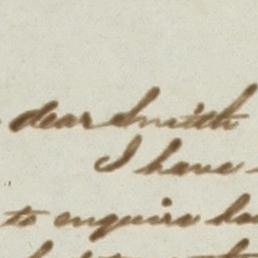 dear Smith
I have
to enquire